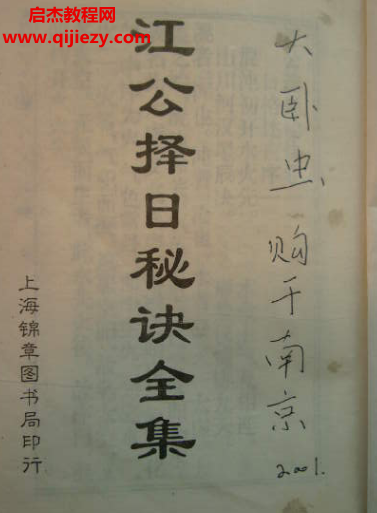 启杰教程网
www.qijiezy.com
江公择日秘诀全集
大卧虫
购于南京
2001.
上海锦章图书局印行